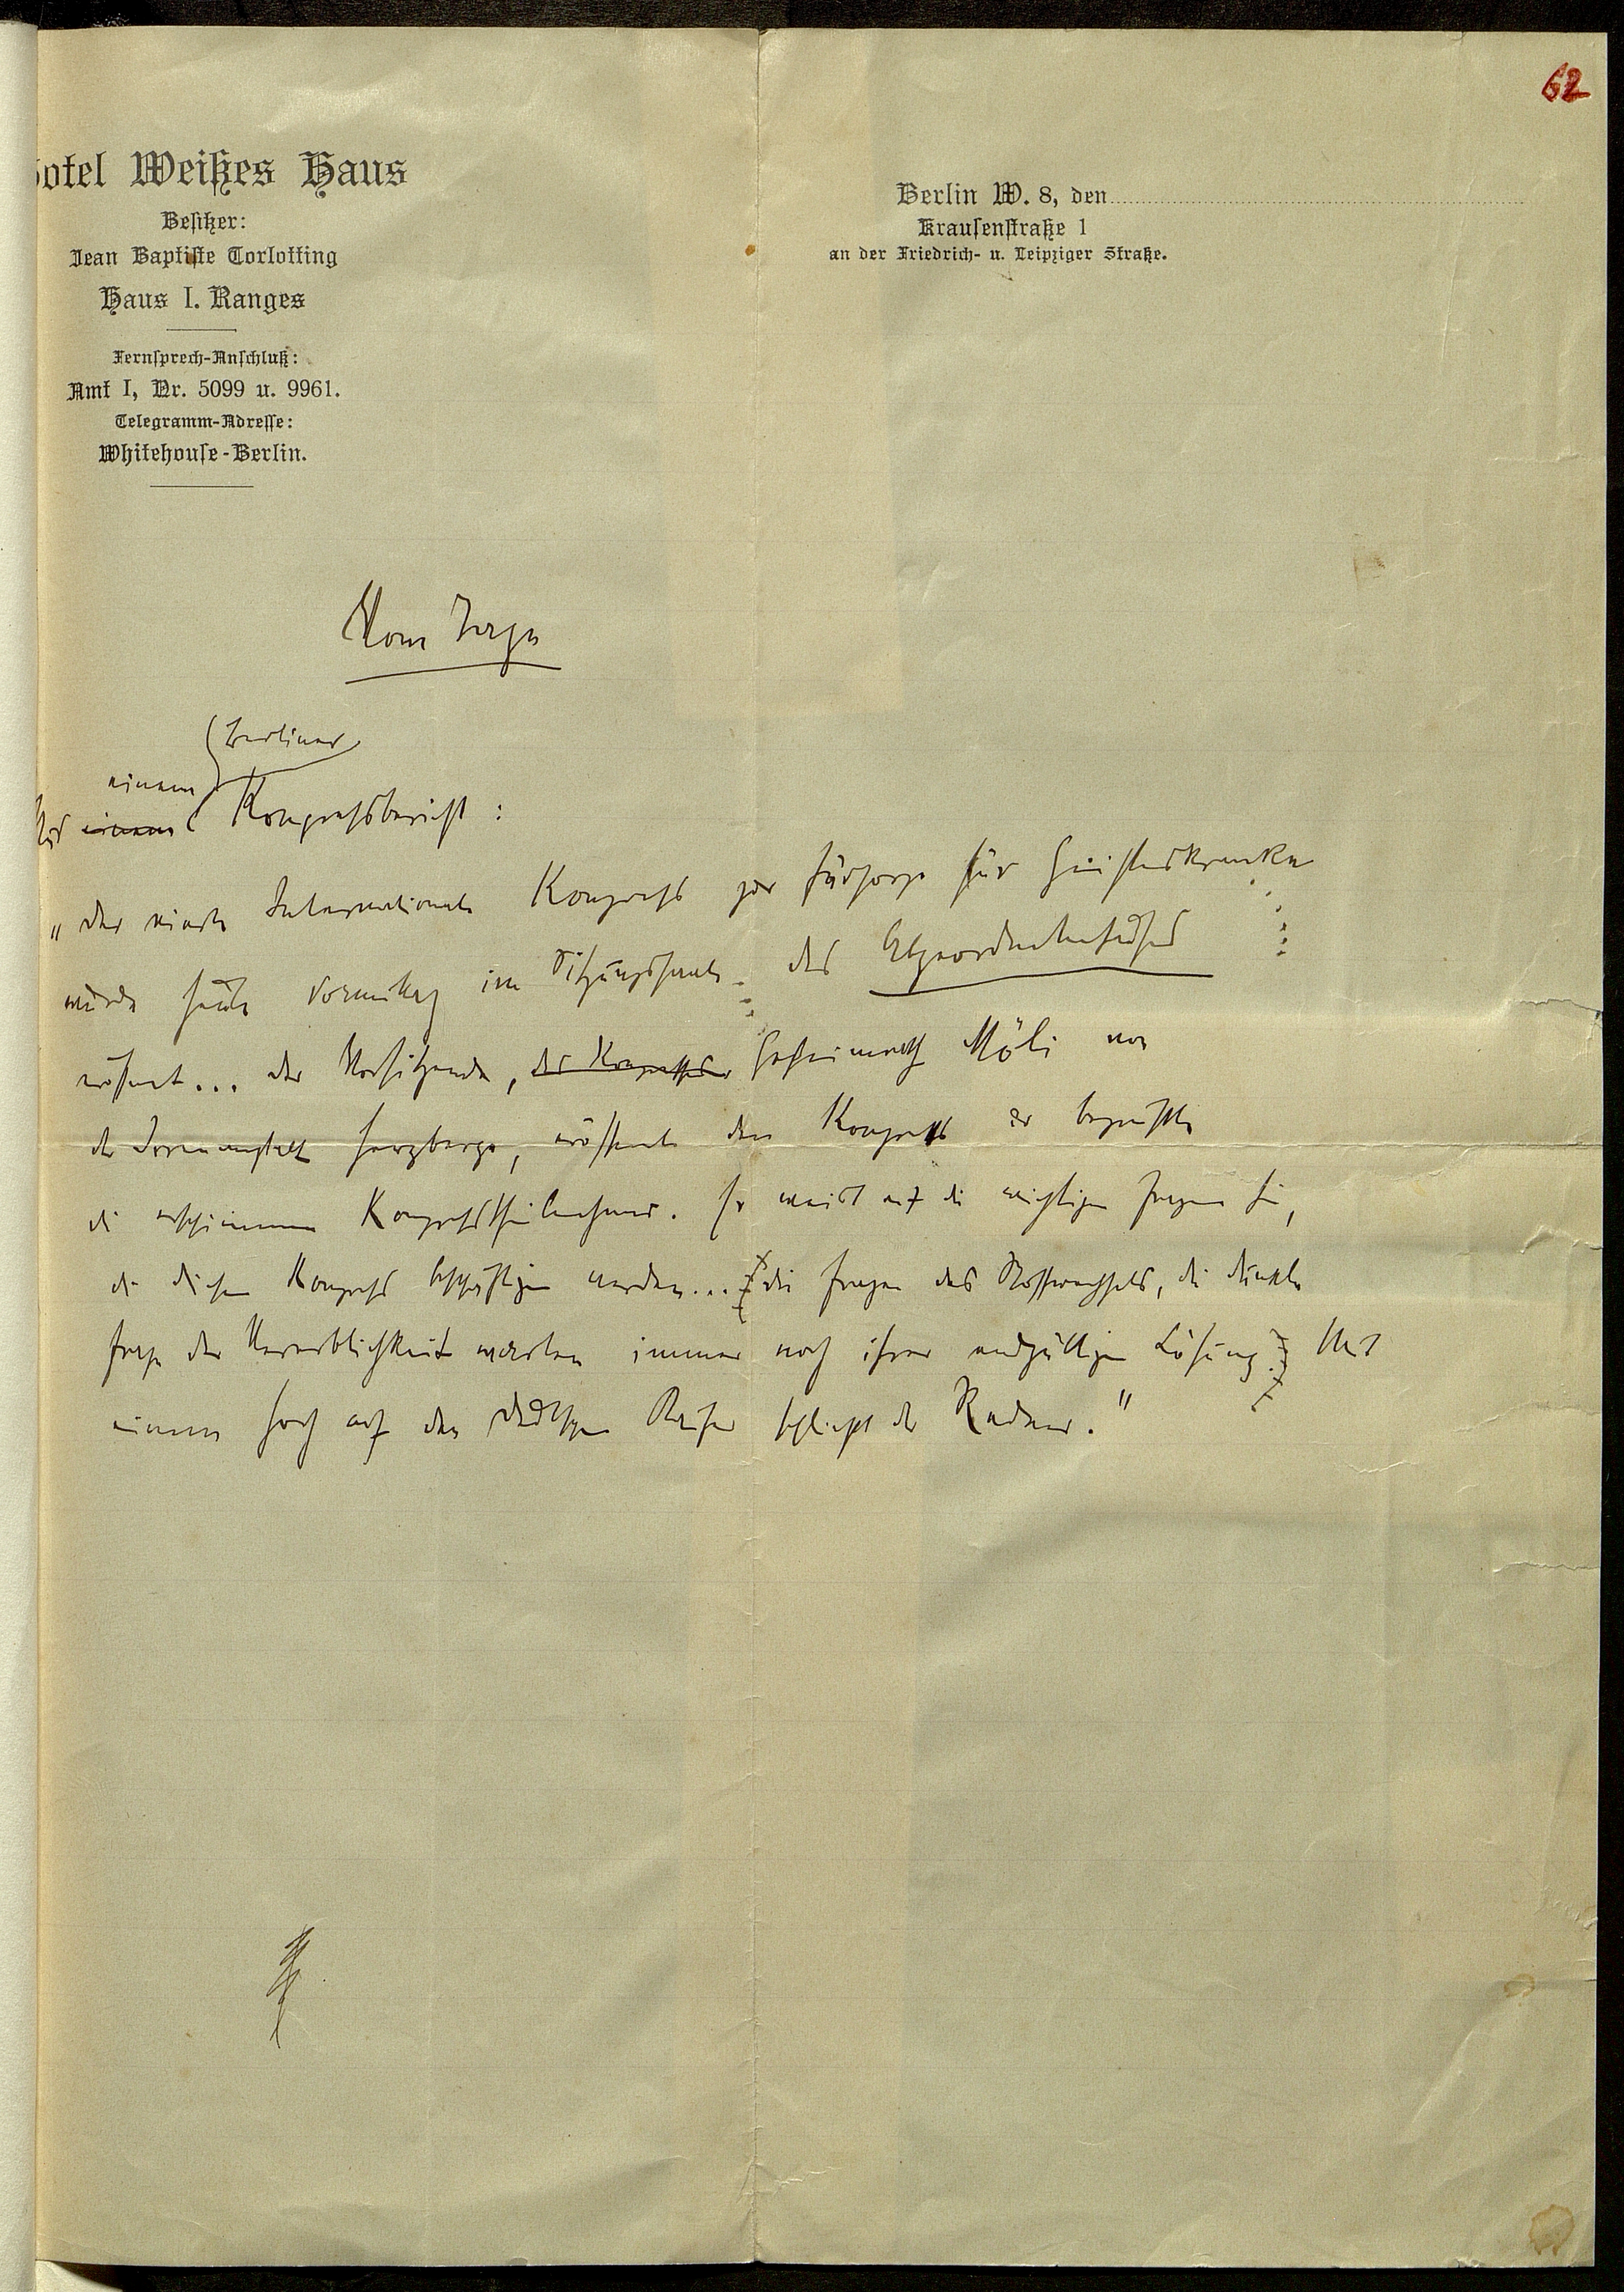 62
Hotel Weißes Haus
Besitzer:
Jean Baptiste Torlotting
Haus I. Ranges
Fernsprech-Anschluß:
Amt I, Nr. 5099 u. 9961.
Telegramm-Adresse:
Whitehouse-Berlin.
Berlin W. 8, den
Krausenstraße 1
an der Friedrich- u. Leipziger Straße.
Vom Tage
Berliner
einem
Aus einem Kongreßbericht:
„Der vierte Internationale Kongreß zur Fürsorge für Geisteskranke
wurde heute Vormittag im Sitzungssaale des Abgeordnetenhauses
eröffnet... Der Vorsitzende, des Kongresses Geheimrath Möli von
der Irrenanstalt Herzberge, eröffnete den Kongreß er begrüßte
die erschienenen Kongreßtheilnehmer. Er weist auf die wichtigen Fragen hin,
die diesen Kongreß beschäftigen werden... die Fragen des Stoffwechsels, die dunkle
Frage der Vererblichkeit warten immer noch ihrer endgültigen Lösung. Mit
einem Hoch auf den deutschen Kaiser schließt der Redner."